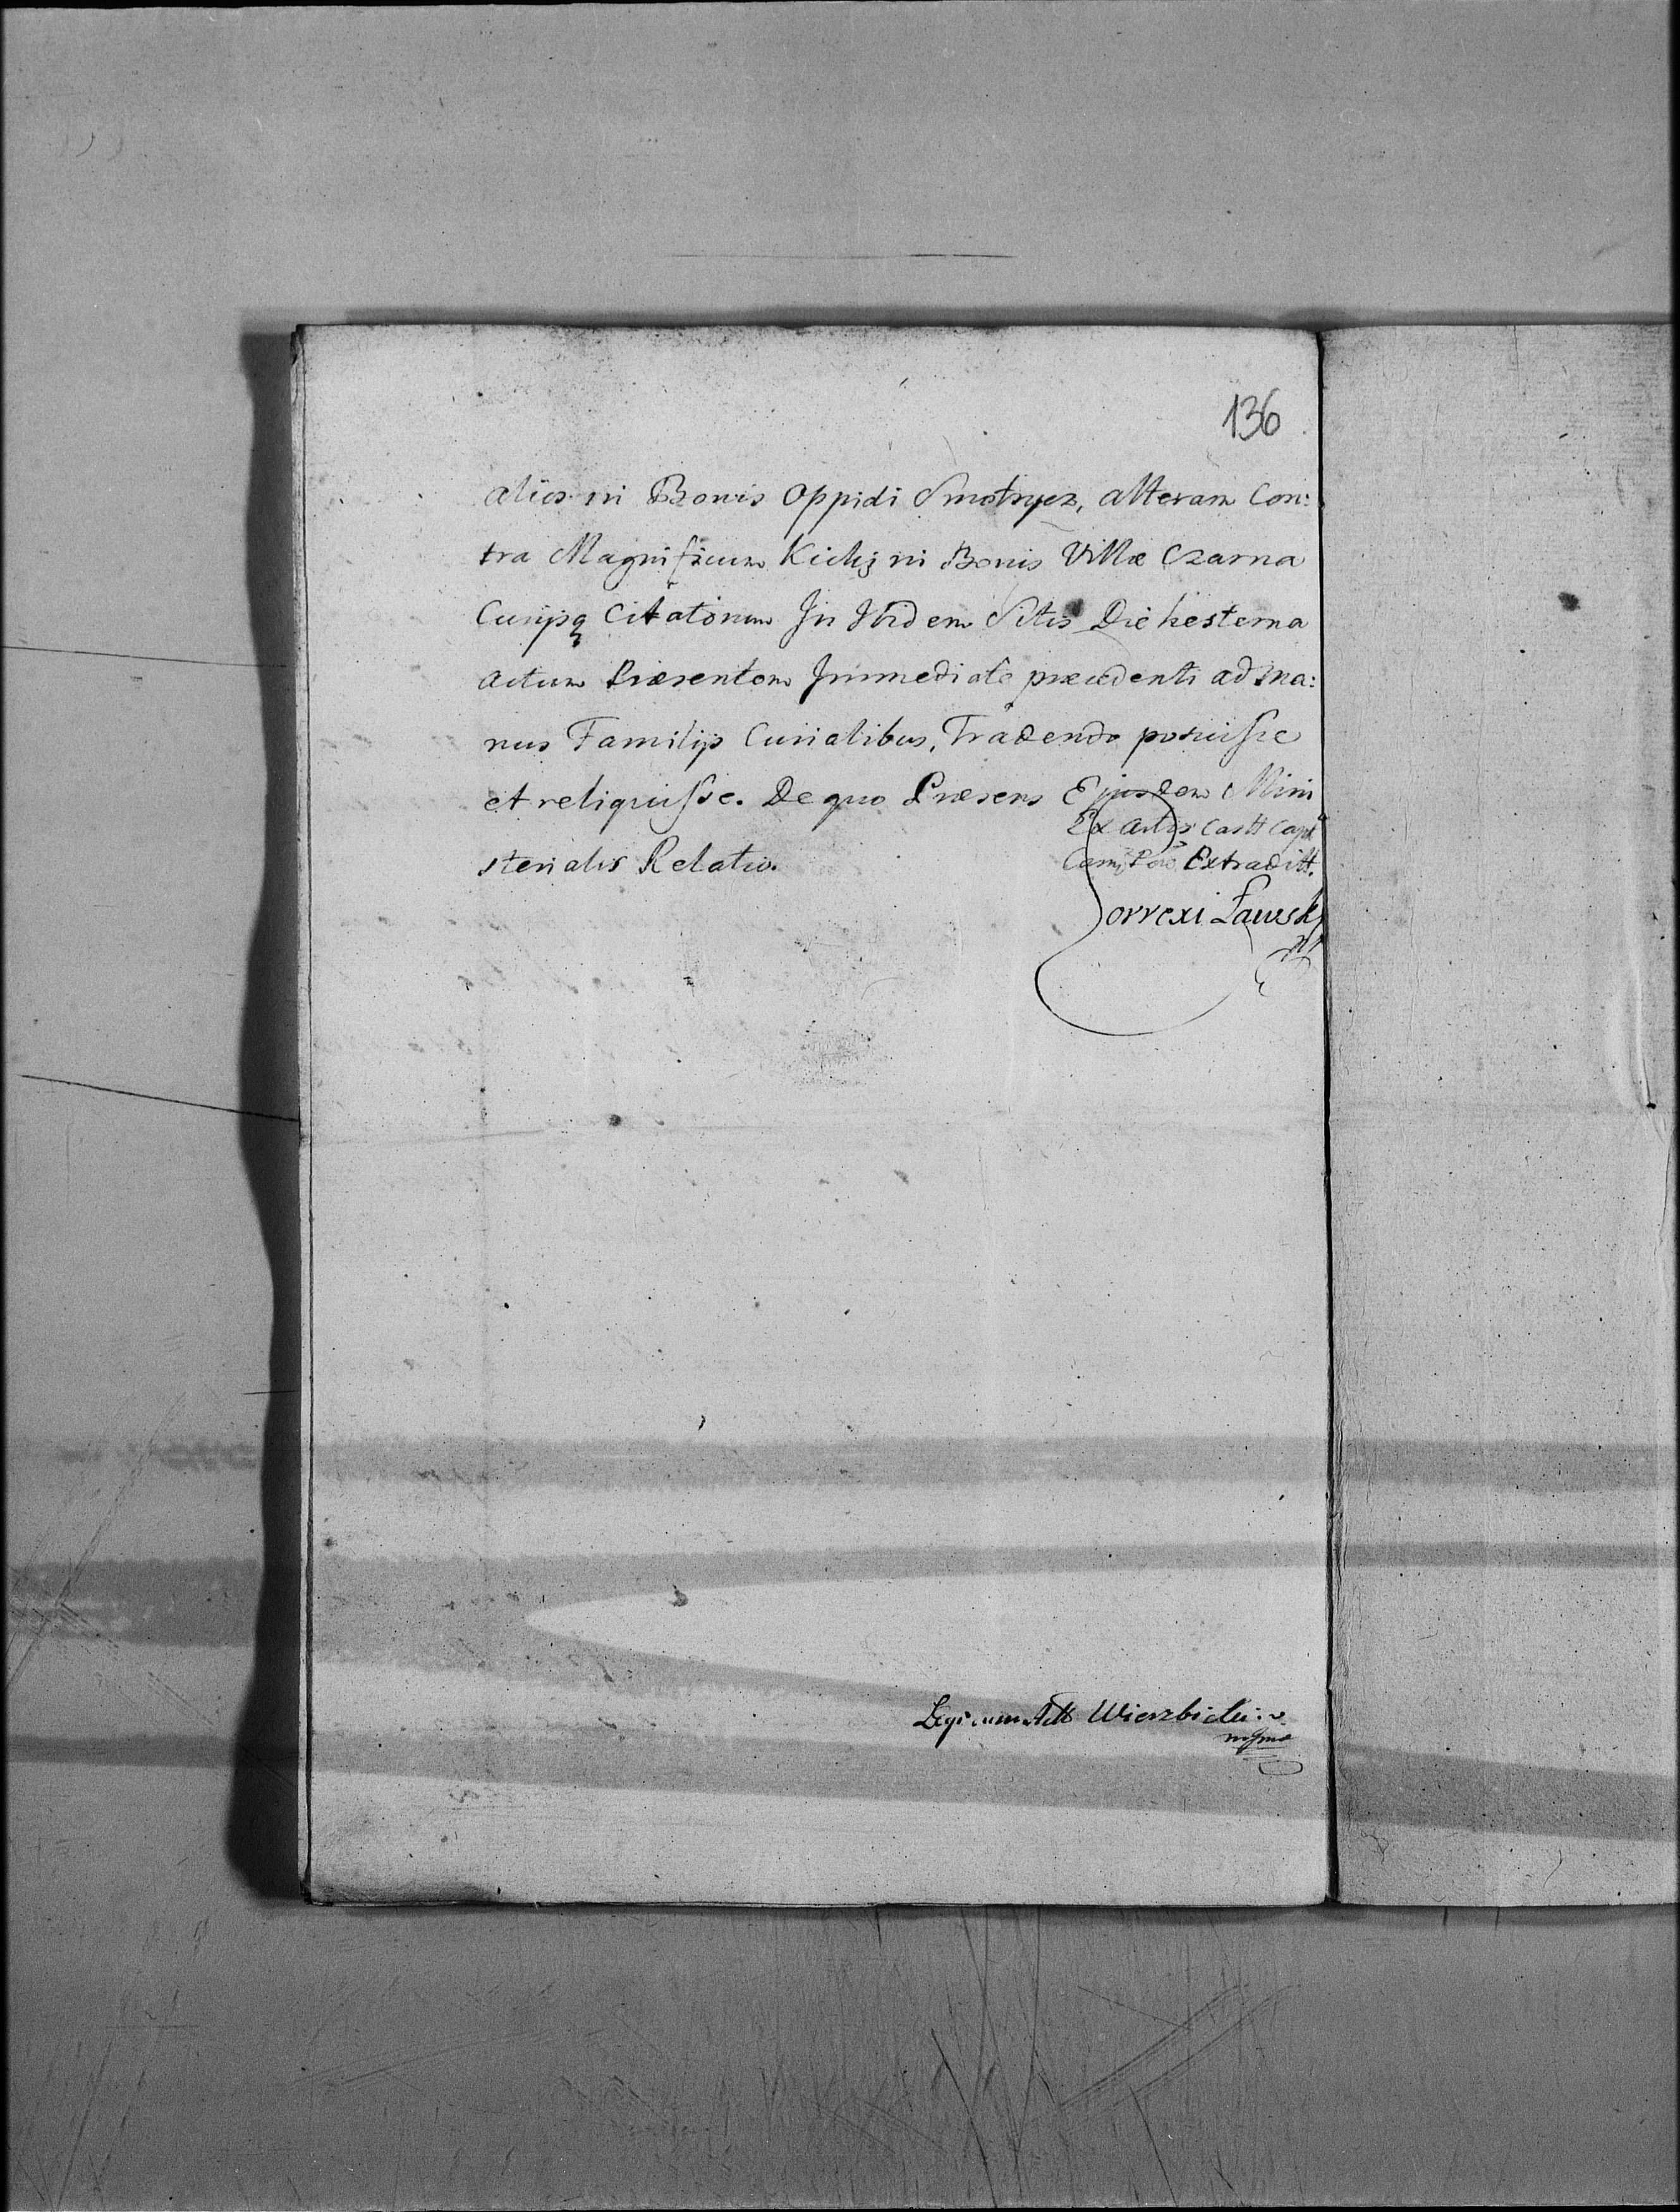 136
alios in Bonis Oppidi Smotrycz, alteram Con:
tra Magnificum Kicki in Bonis Villæ Czarna
Curijsq Citatorum In Ibidem Sitis Die hesterna
actum Præsentem Immediate præcedenti ad ma:
nus Familijs Curialibus, Tradendo posuisse
et reliquisse. De quo Præsens Ejusdem Mini
sterialis Relatio.
Ex Actis Castr Capt
Cam, Extraditt.
Correxi Ławski
Legi cum Actt Wierzbicki
mpma